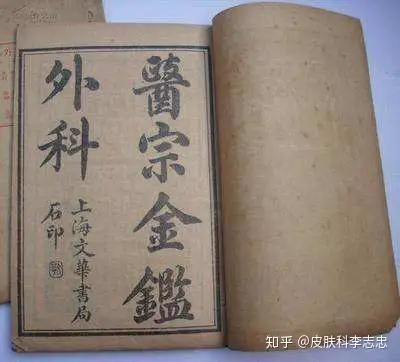 醫宗金鑑
外科
上海文華書局
石印
知乎 @皮肤科李志忠